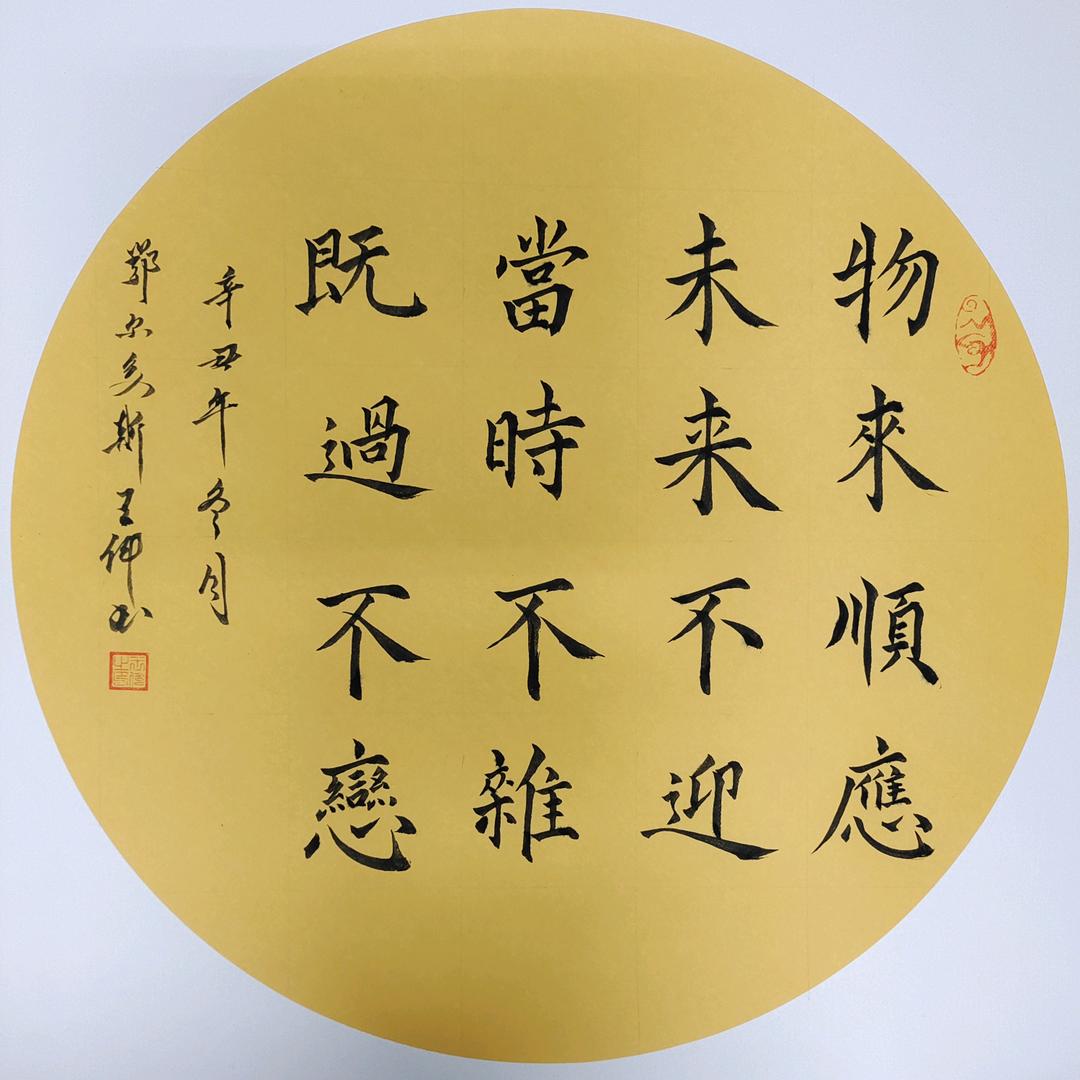 物來順應
未来不迎
當時不雜
既過不戀
辛丑年冬月
鄂尔多斯王伟书